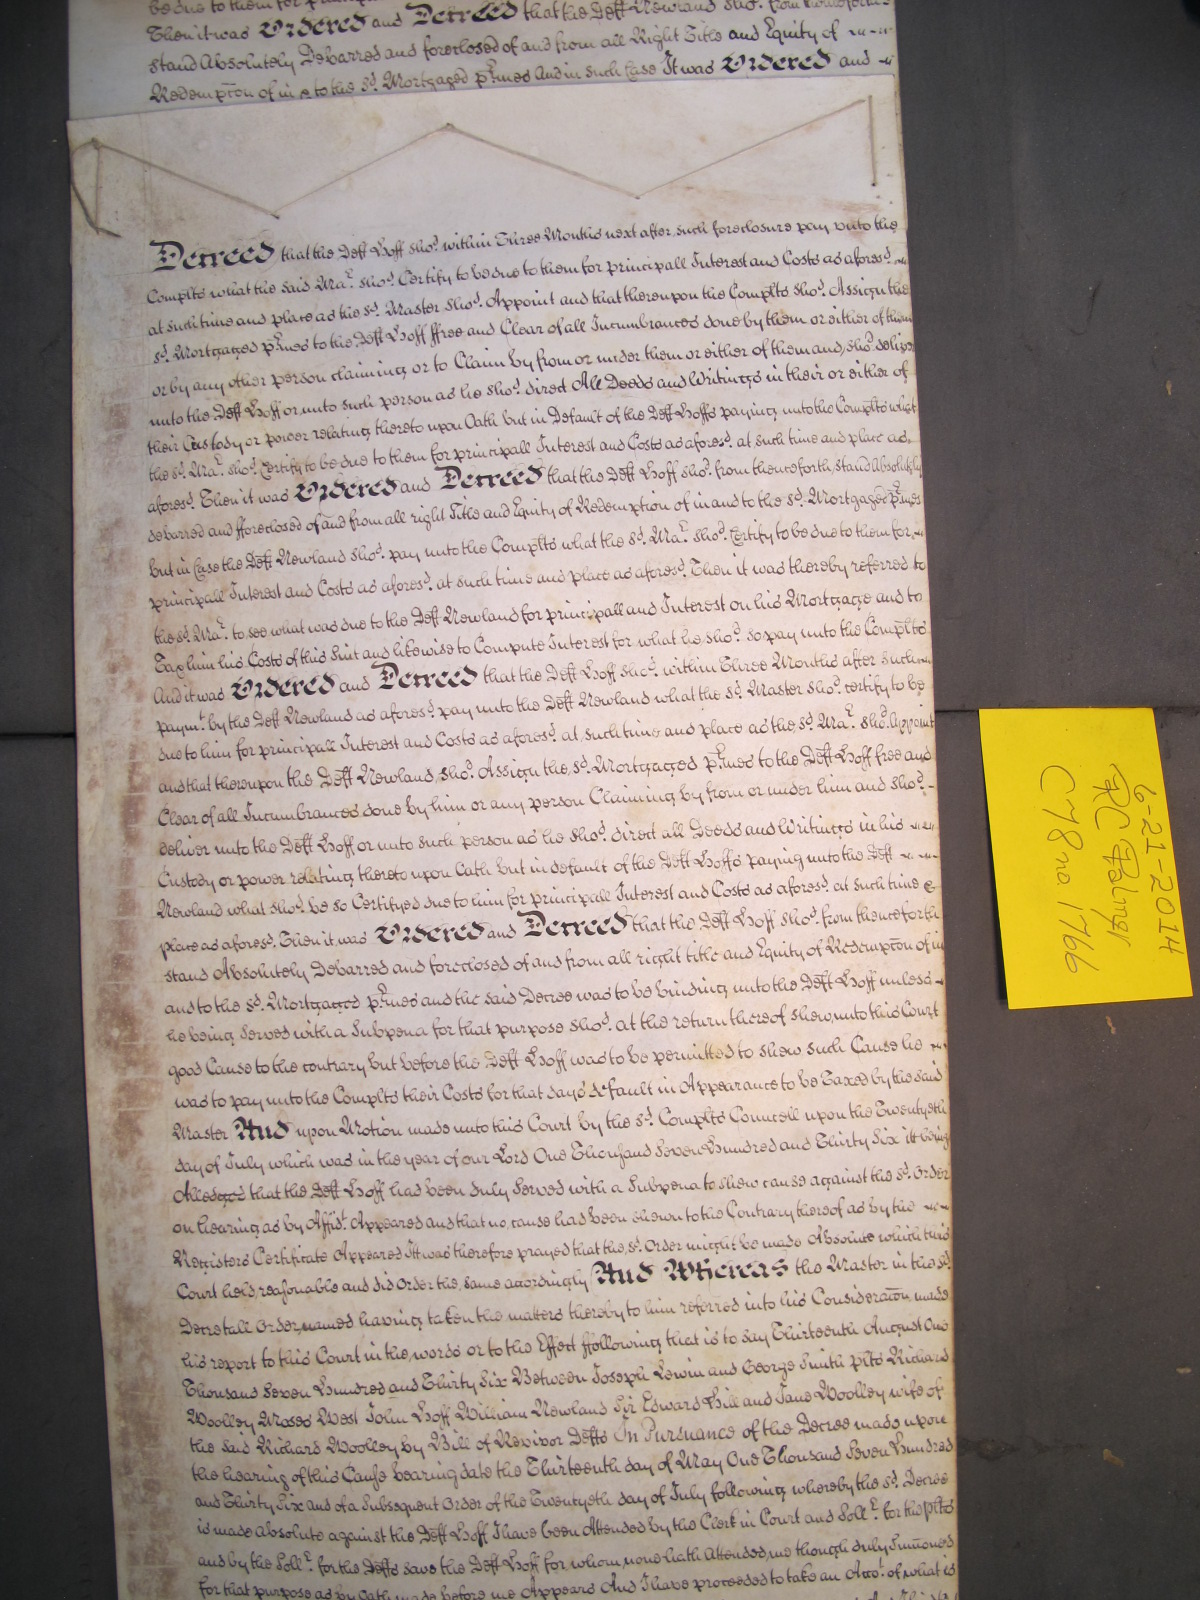 be due to them for
Then it was Ordered and Decreed that the Deft Newland sho.d from thenceforth
stand Absolutely Debarred and foreclosed of and from all Right Title and Equity of
Redempcon of in & to the sd. Mortgaged p'mes And in such Case It was Ordered and
Decreed that the Deft Hoff sho.d within Three Months next after such foreclosure pay unto the
Complts what the said Ma.r sho.d Certify to be due to them for principall Interest and Costs as afores.d
at such time and place as the s.d Master sho.d Appoint and that thereupon the Complts sho.d Assign the
s.d Mortgaged p'mes to the Deft Hoff ffree and Clear of all Incumbrances done by them or either of them
or by any other person claiming or to Claim by from or under them or either of them and sho.d deliver
unto the Deft Hoff or unto such person as he sho.d direct All Deeds and Writings in their or either of
their Custody or power relating thereto upon Oath but in Default of the Deft Hoffs paying unto the Complts what
the s.d Ma.r sho.d Certify to be due to them for principall Interest and Costs as afores.d at such time and place as
afores.d Then it was Ordered and Decreed that the Deft Hoff sho.d from thenceforth stand Absolutely
debarred and fforeclosed of and from all right Title and Equity of Redemption of in and to the s.d Mortgaged p'mes
but in Case the Deft Newland sho.d pay unto the Complts what the s.d Ma.r sho.d Certify to be due to them for
principall Interest and Costs as afores.d at such time and place as afores.d Then it was thereby referred to
the s.d Ma.r to see what was due to the Deft Newland for principall and Interest on his Mortgage and to
Tax him his Costs of this Suit and likewise to Compute Interest for what he sho.d so pay unto the Complts
And it was Ordered and Decreed that the Deft Hoff sho.d within Three Months after such
paym.t by the Deft Newland as afores.d pay unto the Deft Newland what the s.d Master sho.d certify to be
due to him for principall Interest and Costs as afores.d at such time and place as the s.d Ma.r sho.d Appoint
and that thereupon the Deft Newland sho.d Assign the s.d Mortgaged p'mes to the Deft Hoff free and
Clear of all Incumbrances done by him or any person Claiming by from or under him and sho.d
deliver unto the Deft Hoff or unto such person as he sho.d direct all Deeds and Writings in his
Custody or power relating thereto upon Oath but in default of the Deft Hoffs paying unto the Deft
Newland what sho.d be so Certifyed due to him for principall Interest and Costs as afores.d at such time &
place as afores.d Then it was Ordered and Decreed that the Deft Hoff sho.d from thenceforth
stand Absolutely Debarred and foreclosed of and from all right title and Equity of Redempcon of in
and to the s.d Mortgaged p'mes and the said Decree was to be binding unto the Deft Hoff unless
he being Served with a Subpena for that purpose sho.d at the return thereof shew unto this Court
good Cause to the contrary but before the Deft Hoff was to be permitted to shew such Cause he
was to pay unto the Complts their Costs for that days default in Appearance to be Taxed by the said
Master And upon Motion made unto this Court by the s.d Complts Councell upon the Twentyeth
day of July which was in the year of our Lord One Thousand Seven Hundred and Thirty Six it being
Alledged that the Deft Hoff had been duly Served with a Subpena to shew cause against the s.d Order
on hearing as by Affid.t Appeared and that no cause had been shewn to the Contrary thereof as by the
Registers Certificate Appeared It was therefore prayed that the s.d Order might be made Absolute which this
Court held reasonable and did Order the same accordingly And Whereas the Master in the s.d
Decretall Order named having taken the matters thereby to him referred into his Consideracon made
his report to this Court in the words or to the Effect ffollowing that is to say Thirteenth August One
Thousand Seven Hundred and Thirty Six Between Joseph Lewin and George Smith plts Richard
Woolley Moses West John Hoff William Newland Sir Edward Hill and Jane Woolley wife of
the said Richard Woolley by Bill of Revivor Defts In Pursuance of the Decree made upon
the hearing of this Cause bearing date the Thirteenth day of May One Thousand Seven Hundred
and Thirty Six and of a Subsequent Order of the Twentyeth day of July following whereby the s.d Decree
is made absolute against the Deft Hoff I have been Attended by the Clerk in Court and Soll.r for the plts
and by the Soll.r for the Defts save the Deft Hoff for whom none hath Attended me though duly Summoned
for that purpose as by Oath made before me Appears And I have proceeded to take an Acco.t of what is
6-21-2014
RC Palmer
C78 no. 1766